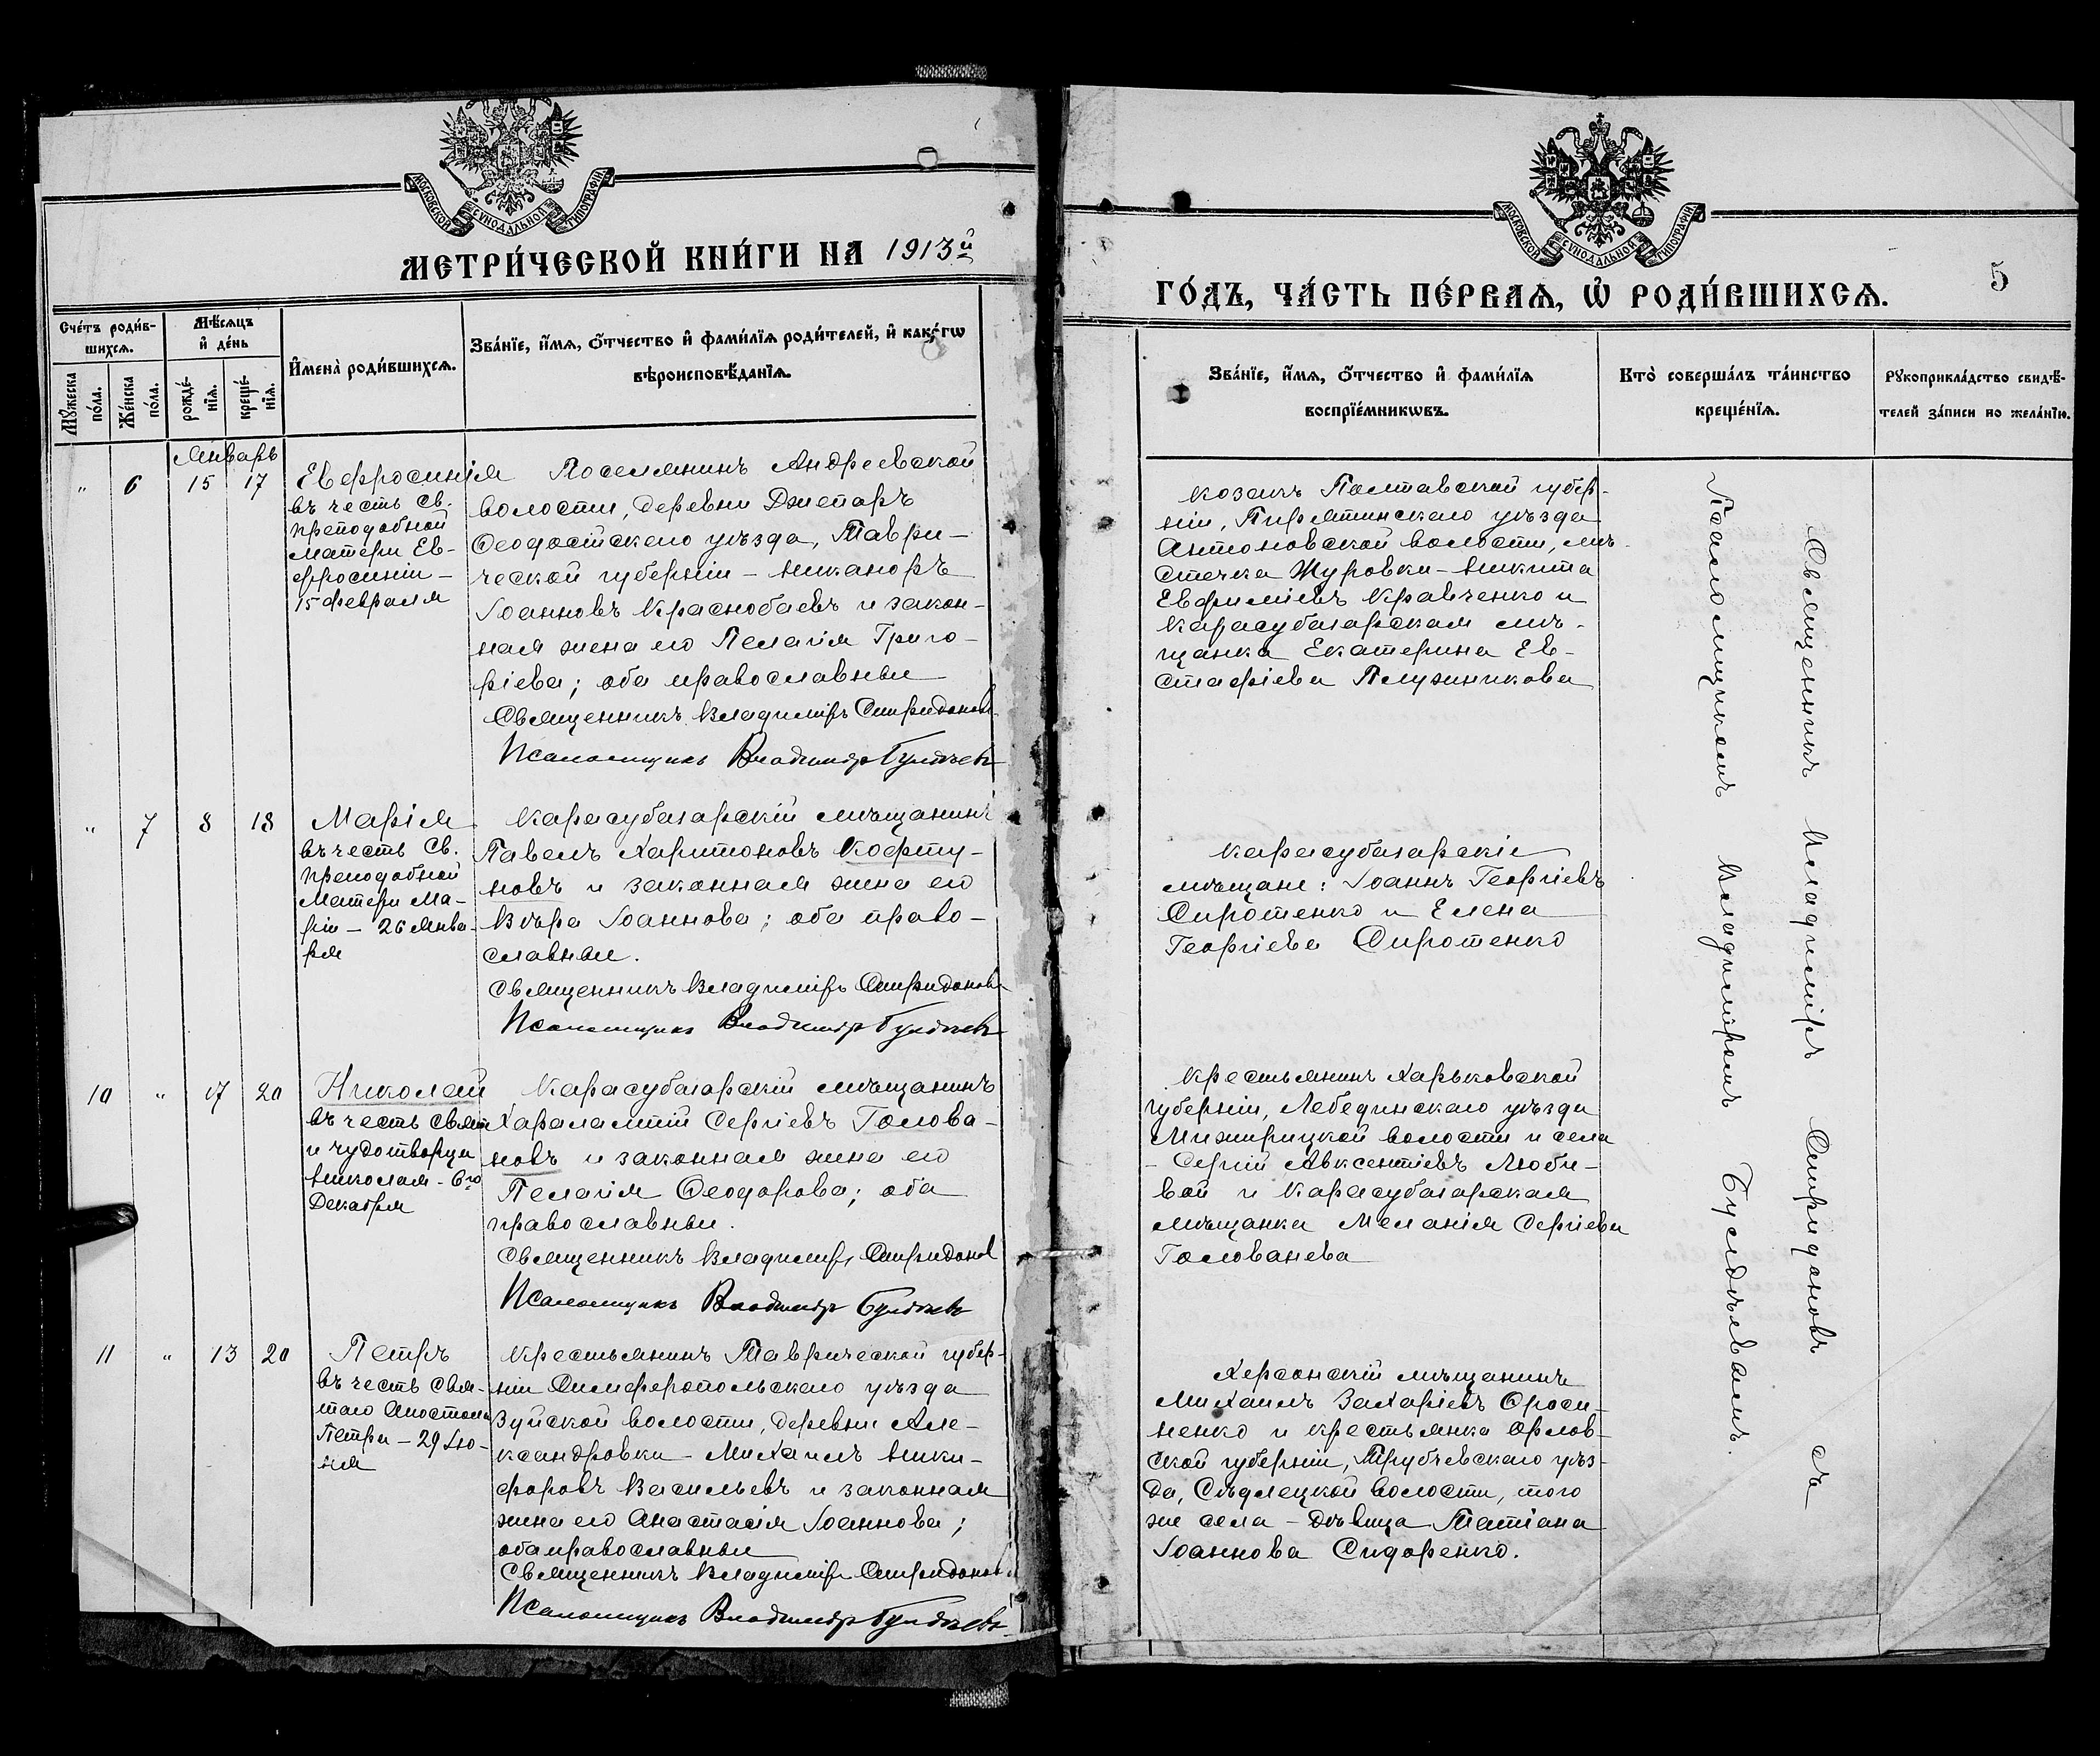 МОСКОВСКОЙ СѴНОДАЛЬНОЙ ТИПОГРАФІИ
МЕТРИ́ЧЕСКОЙ КНИ́ГИ НА 1913й
Сче́тъ роди́в-
шихсѧ.
Мѣ́сѧцъ
и҆ де́нь
И҆мена̀ роди́вшихсѧ.
Зва́нїе, и҆́мѧ, ѻ҆́тчество и҆ фами́лїѧ роди́телей, и҆ како́гѡ
вѣроисповѣ́данїѧ.
Мꙋ́жеска
по́ла.
Же́нска
по́ла.
рожде́-
нїѧ.
креще́-
нїѧ.
Январь
" 6 15 17
Евфросинія
въ честь св.
преподобной
матери Ев-
фросиніи –
15 февраля
Поселянинъ Андреевской
волости, деревни Джепаръ
Ѳеодосійскаго уѣзда, Таври-
ческой губерніи – Никаноръ
Іоанновъ Краснобаевъ и закон-
ная жена его Пелагія Григо-
ріева; оба православные
Священникъ Владиміръ Спиридоновъ
Псаломщикъ Владимиръ
" 7 8 18
Марія
въ честь св.
преподобной
Матери Ма-
ріи – 26 Янва-
ря
Карасубазарскій мѣщанинъ
Павелъ Харитоновъ Кофту-
новъ и законная жена его
Вѣра Іоаннова; оба право-
славные.
Священникъ Владиміръ Спиридоновъ
Псаломщикъ Владимиръ
10 " 17 20
Николай
въ честь Свят.
и чудотворца
Николая – 6го
Декабря
Карасубазарскій мѣщанинъ
Харалампій Сергіевъ Голова-
новъ и законная жена его
Пелагія Ѳеодорова; оба
православные.
Священникъ Владиміръ Спиридонов
Псаломщикъ Владимир
11 " 13 20
Петръ
въ честь Свя-
таго Апостола
Петра – 29 Iю-
ня
Крестьянинъ Таврической губер-
ніи Симферопольскаго уѣзда
Зуйской волости, деревни Але-
ксандровки – Михаилъ Ники-
форовъ Васильевъ и законная
жена его Анастасія Іоаннова;
оба православные
Священникъ Владиміръ Спиридонов
Псаломщикъ Владимиръ
МОСКОВСКОЙ СѴНОДАЛЬНОЙ ТИПОГРАФІИ
5
ГО́ДЪ, ЧА́СТЬ ПЕ́РВАѦ, Ѡ҆ РОДИ́ВШИХСѦ.
Зва́нїе, и҆́мѧ, ѻ҆́тчество и҆ фами́лїѧ
воспрїе́мникѡвъ.
Кто̀ соверша́лъ та́инство
креще́нїѧ.
Рꙋкоприкла́дство свидѣ́-
телей за́писи по жела́нїю.
Козакъ Полтавской губер-
ніи, Пирятинскаго уѣзда
Антоновской волости, мѣ-
стечка Журовки – Никита
Евфиміевъ Кравченко и
Карасубазарская мѣ-
щанка Екатерина Ев-
стафіева Плужникова
Карасубазарскіе
мѣщане: Іоаннъ Георгіевъ
Сиротенко и Елена
Георгіева Сиротенко
Крестьянинъ Харьковской
губерніи, Лебединскаго уѣзда
Межирицкой волости и села
– Сергій Авксентіевъ Люби-
вой и Карасубазарская
мѣщанка Меланія Сергіева
Голованева
Херсонскій мѣщанинъ
Михаилъ Захаріевъ
и крестьянка Орлов-
ской губерніи, Трубчевскаго уѣз-
да, Сѣдлецкой волости, того
же села – дѣвица Татіана
Іоаннова Сидоренко.
Священникъ Владиміръ Спиридоновъ съ
Псаломщикомъ Владиміромъ